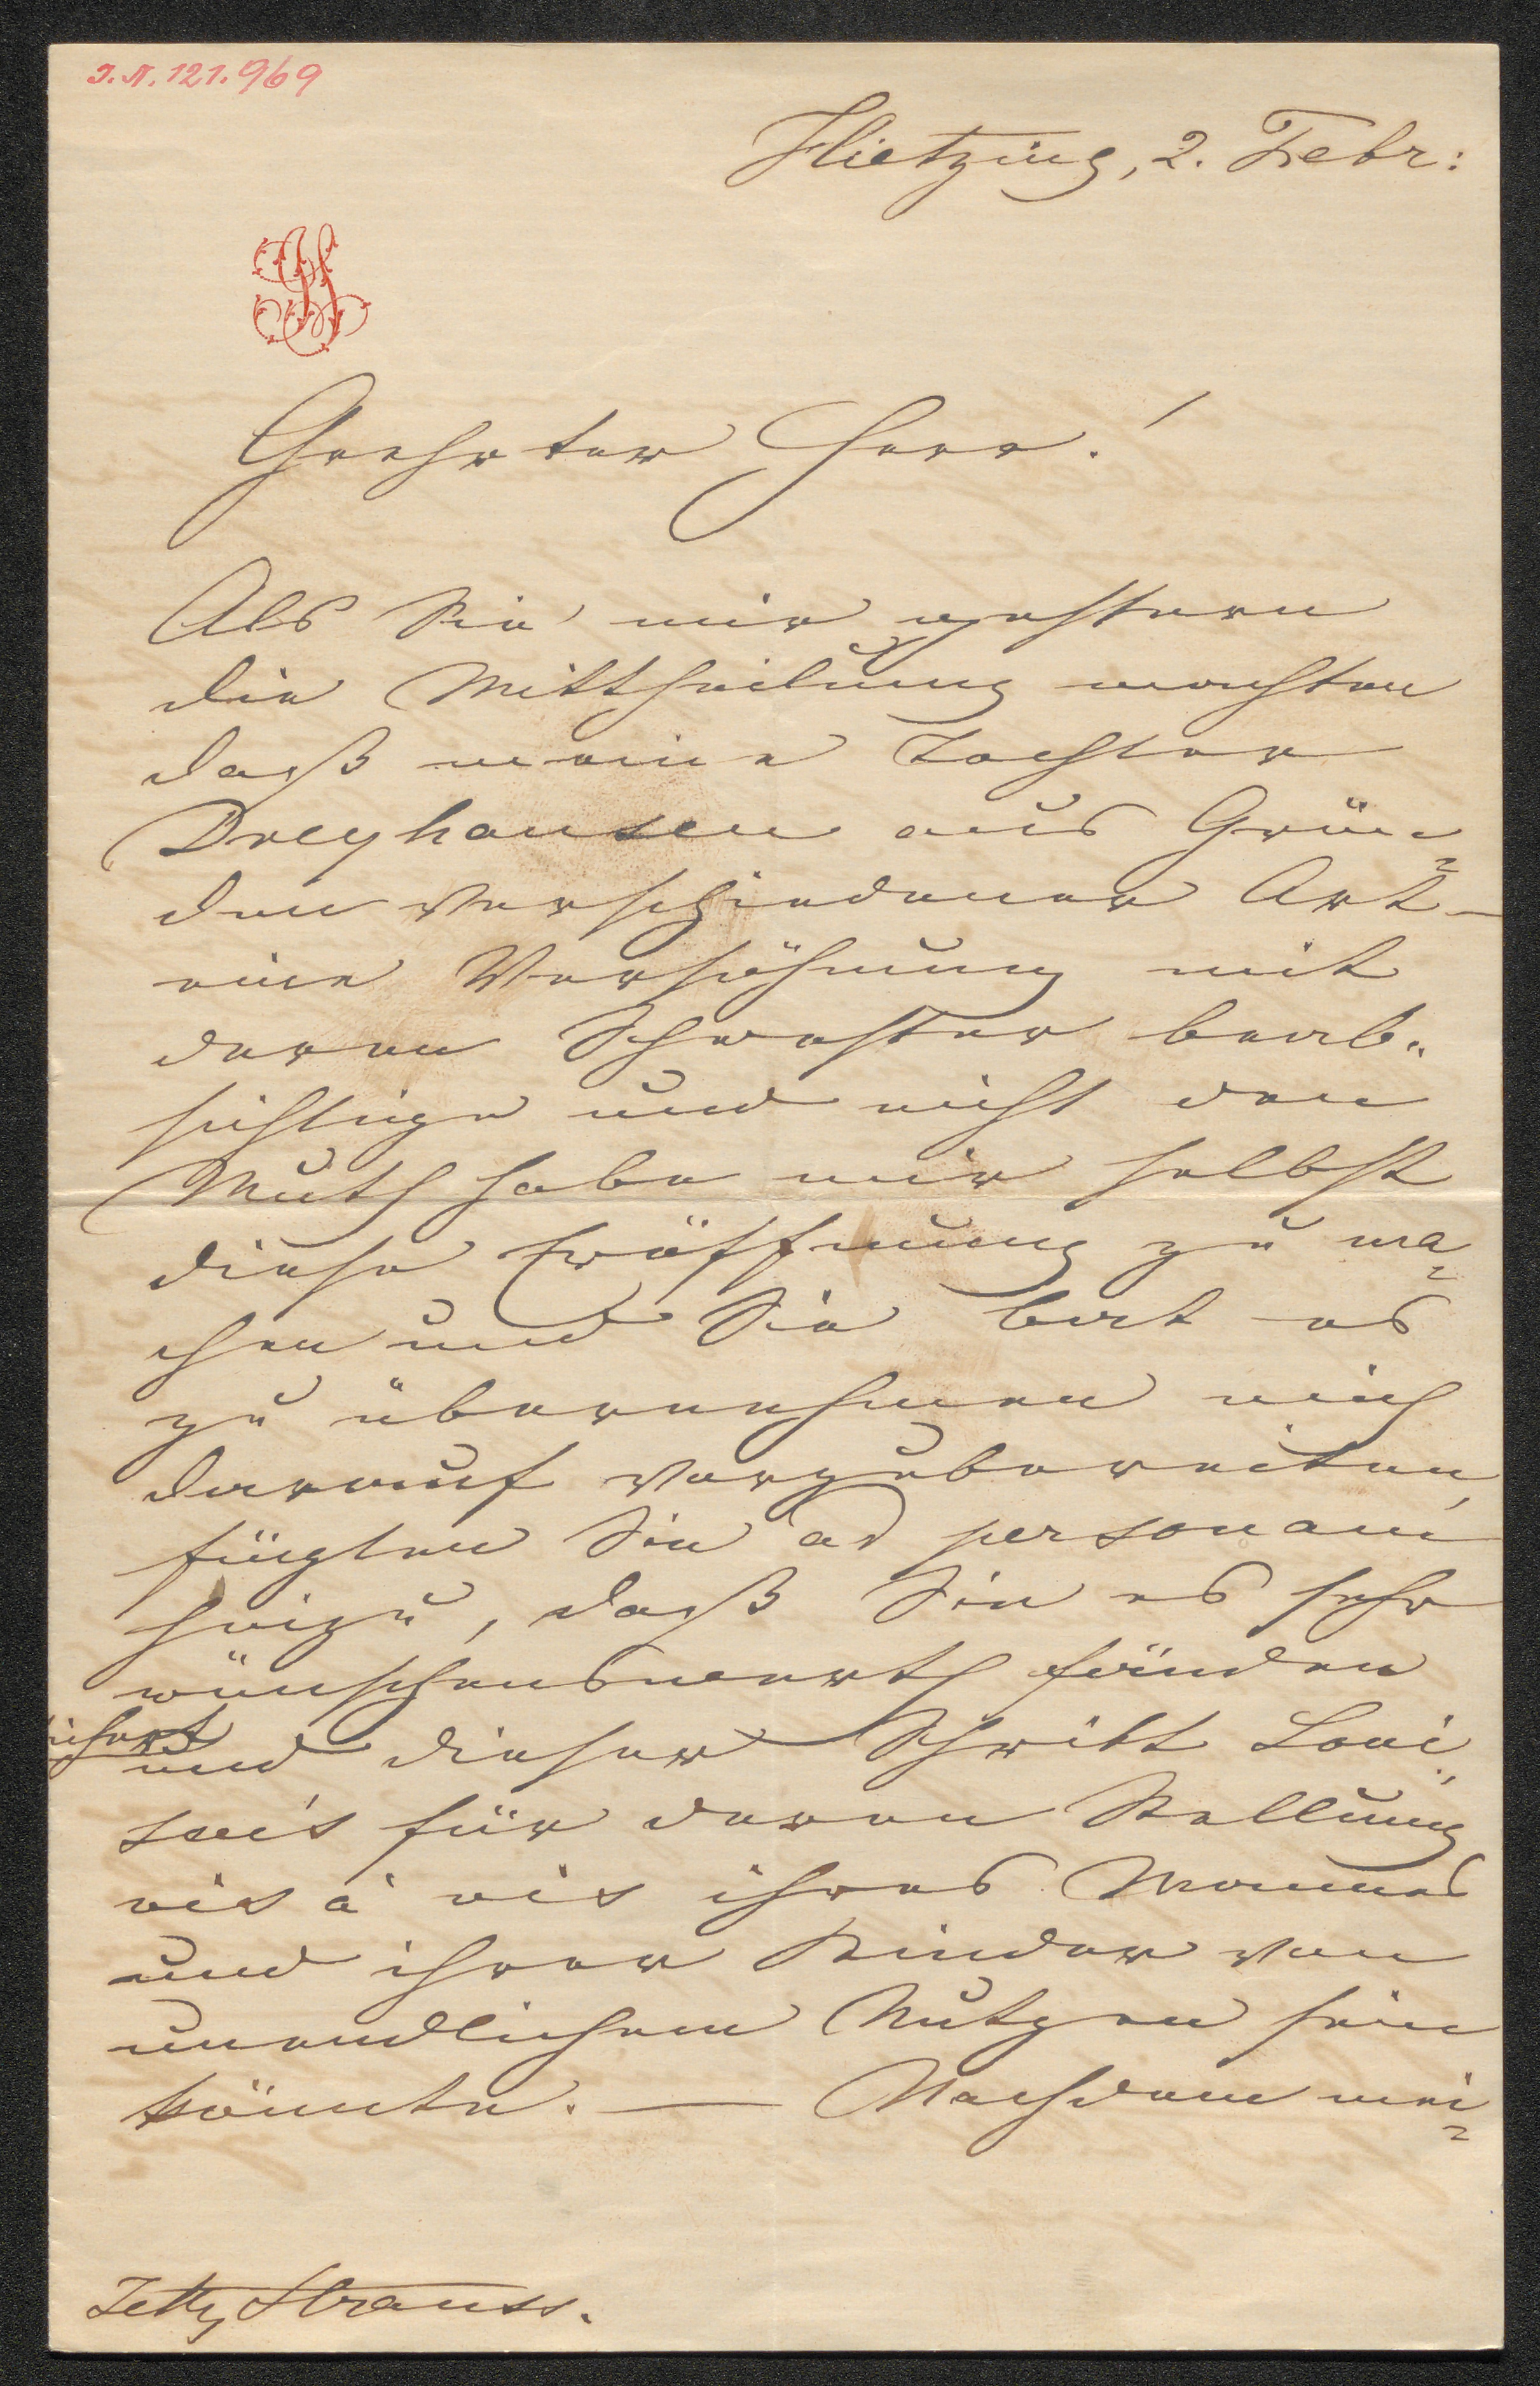 J.N. 121.969
Hietzing, 2. Febr:
JS
Geehrter Herr!
Als Sie mir gestern
die Mittheilung machten
daß meine Tochter
Dreyhausen aus Grün-
den verschiedener Art –
eine Versöhnung mit
deren Schwester beab-
sichtige und nicht den
Muth habe mir selbst
diese Eröffnung zu ma-
chen und Sie bat es
zu übernehmen mich
darauf vorzubereiten,
fügten Sie ad personam
hinzu, daß Sie es sehr
wünschenswerth fänden
und dieser Schritt Loui-
sen's für deren Stellung
vis à vis ihres Mannes
und ihrer Kinder von
unendlichem Nutzen sein
könnte. — Nachdem mei-
Jetty Strauss.